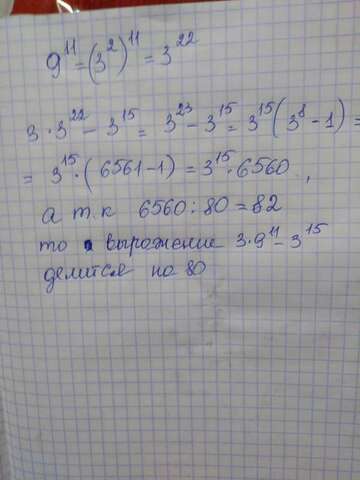 9¹¹=(3²)¹¹=3²²
3·3²²-3¹⁵=3²³-3¹⁵=3¹⁵(3⁸-1)=
=3¹⁵·(6561-1)=3¹⁵·6560,
а т.к 6560:80=82
то выражение 3·9¹¹-3¹⁵
делится на 80